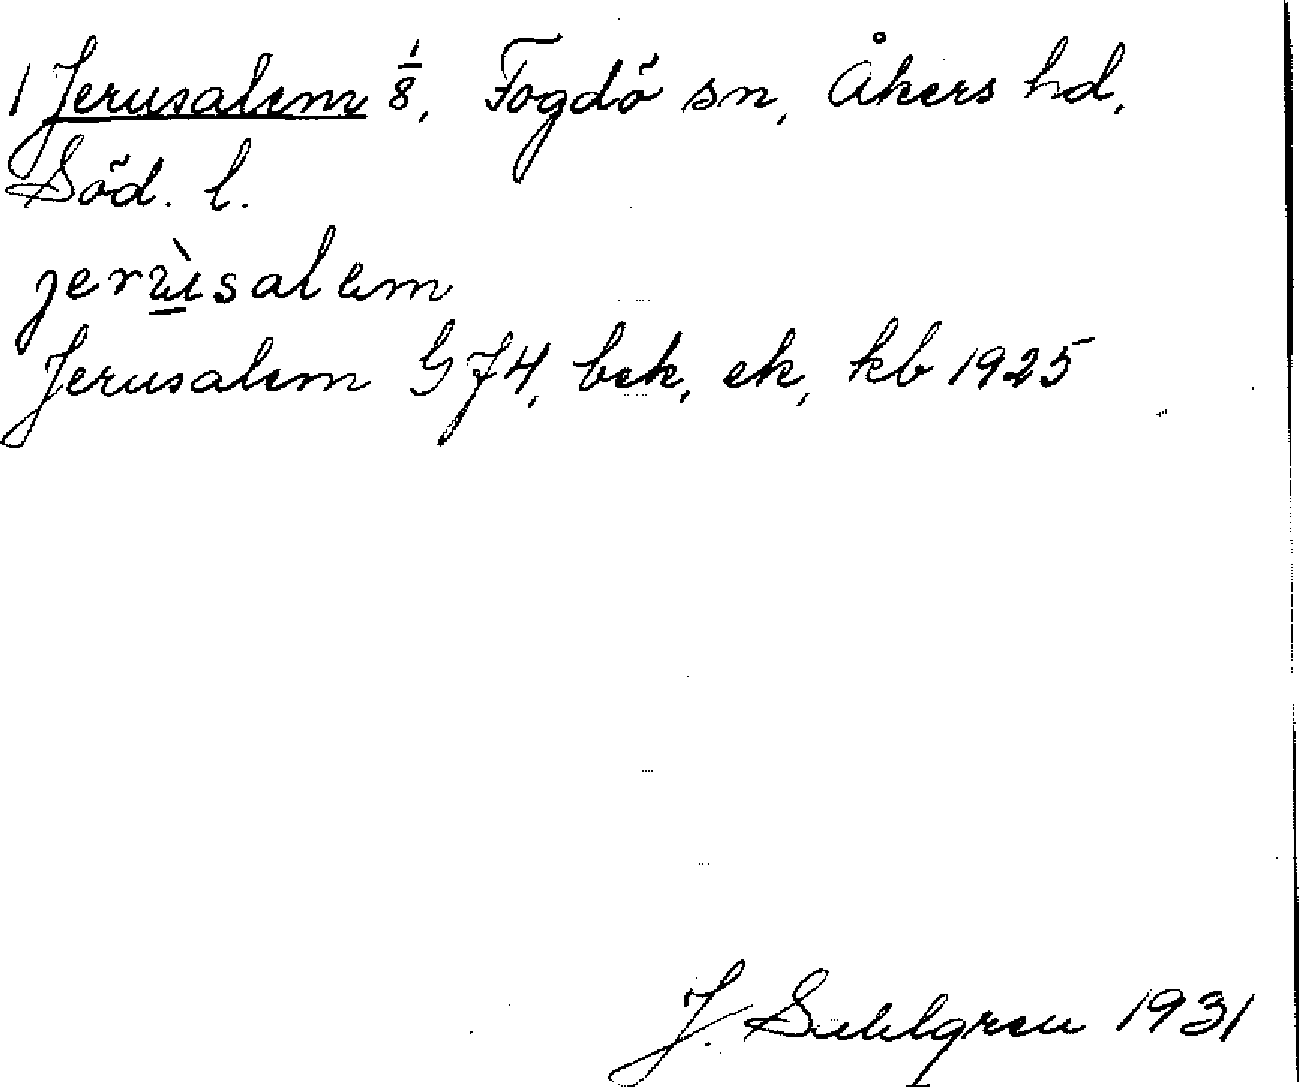 1 Jerusalem 1/8, Fogdö sn, Åkers hd,
Söd. l.
jerùsalem
Jerusalem GJ4, bek, ek, kb 1925
J. Sahlgren 1931